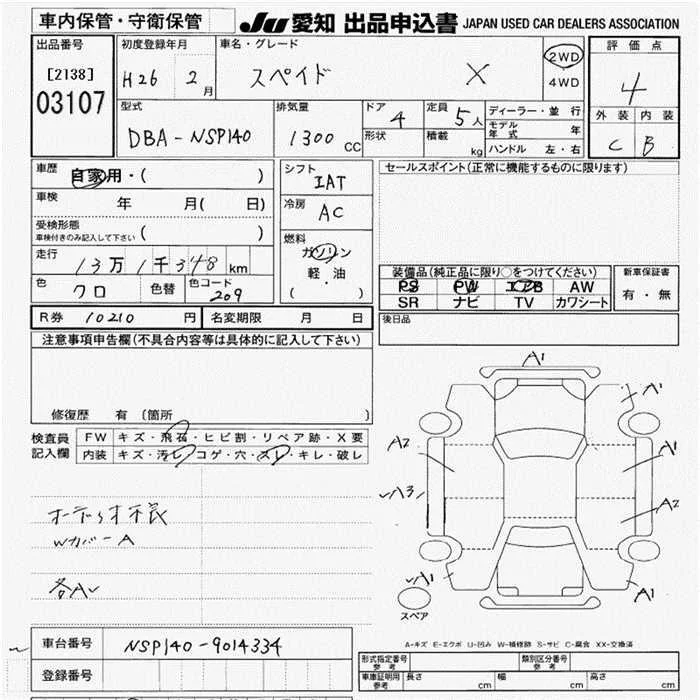 車内保管・守衛保管
JU 愛知 出品申込書 JAPAN USED CAR DEALERS ASSOCIATION
出品番号 [2138] 03107
初度登録年月 H26 2月
車名・グレード スペイド X
2WD 4WD
評価点 4
外装 C 内装 B
型式 DBA-NSP140
排気量 1300 CC
ドア 4
形状
定員 5人
積載 kg
ディーラー・並行
モデル年式 年
ハンドル 左・右
車歴 自家用・( )
車検 年 月( 日)
受検形態
車検付きのみ記入して下さい ( )
走行 13万1千348km
色 クロ 色替 色コード 209
シフト IAT
冷房 AC
燃料 ガソリン
軽・油
( )
セールスポイント(正常に機能するものに限ります)
装備品(純正品に限り○をつけてください)
PS PW エアB AW
SR ナビ TV カワシート
新車保証書
有・無
後日品
R券 10210円 名変期限 月 日
注意事項申告欄(不具合内容等は具体的に記入して下さい)
修復歴 有 〔箇所 〕
検査員記入欄
FW キズ・飛石・ヒビ割・リペア跡・X要
内装 キズ・汚レ・コゲ・穴・スレ・キレ・破レ
オーディオ不良
WカバーA
各A
A1
A1
A2
A1
A3
A2
A1
A1
スペア
A-キズ E-エクボ U-凹み W-補修跡 S-サビ C-腐食 XX-交換済
車台番号 NSP140-9014334
登録番号
形式指定番号 参考
類別区分番号 参考
車庫証明用 参考 長さ cm 幅 cm 高さ cm